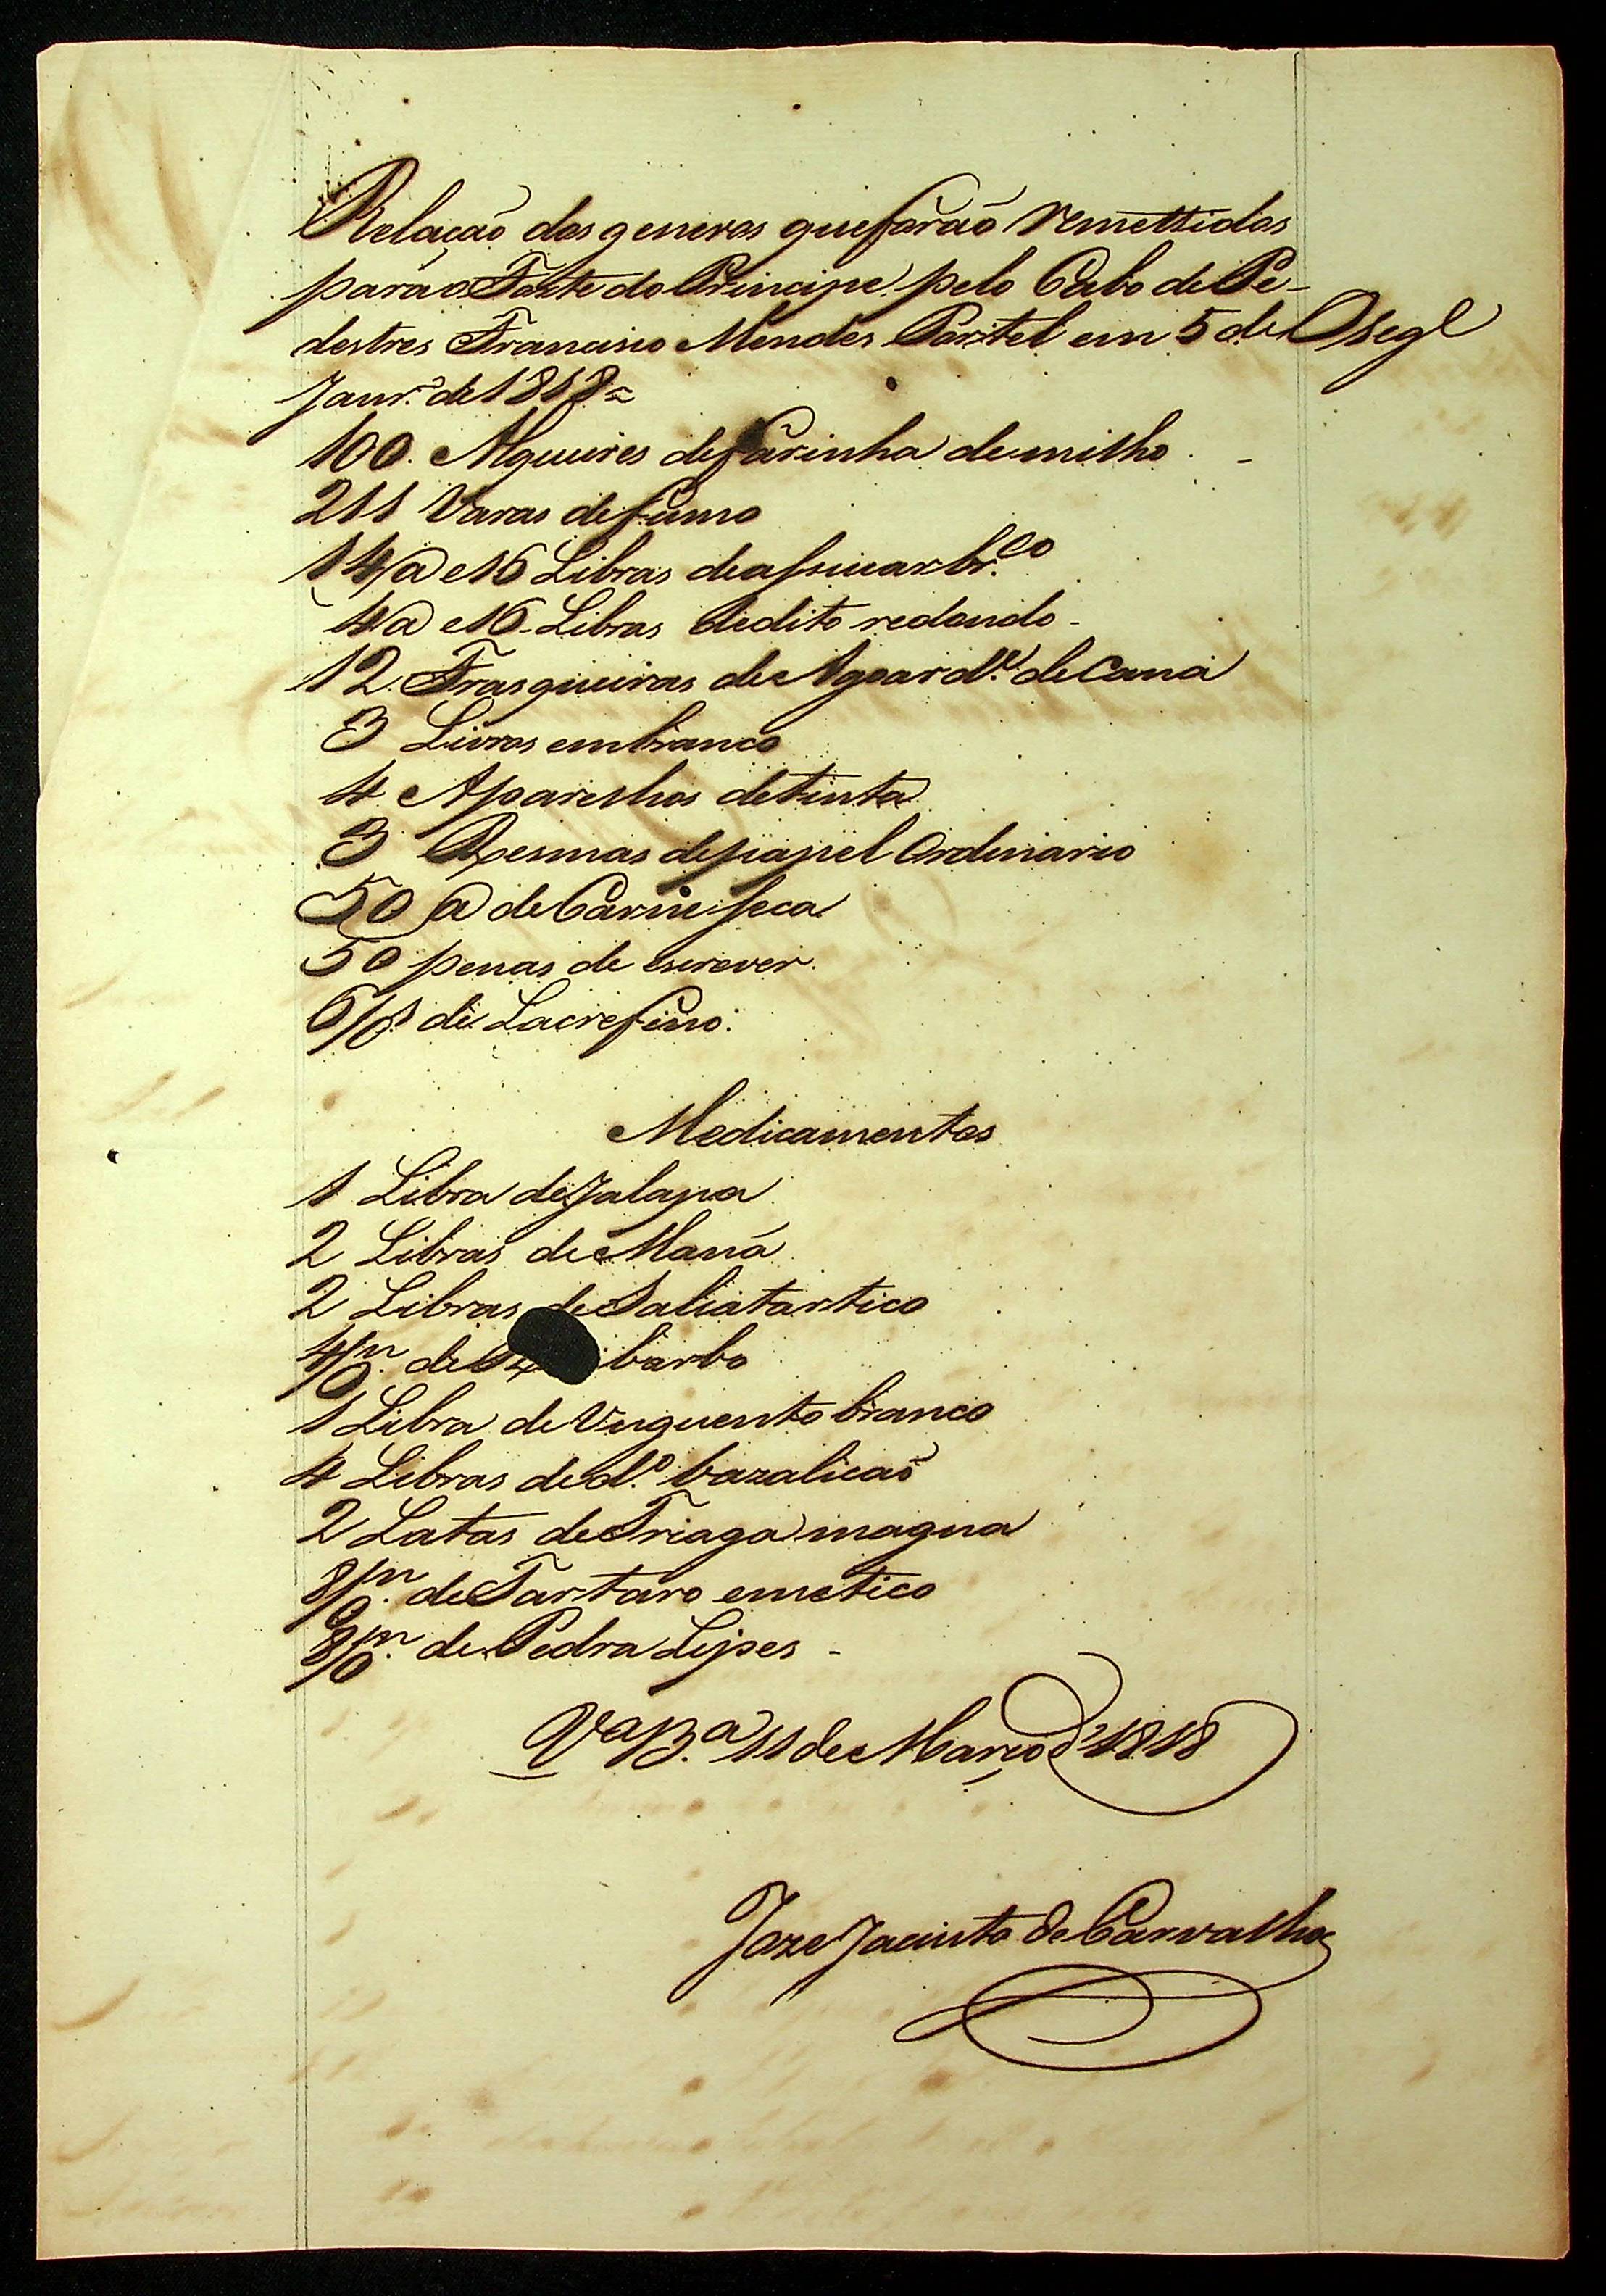 Relação dos generos que forão remettidos
para o Forte do Principe pelo Cabo de Pe-
destres Francisco Mendes Portel em 5 de O seg.e
Janr.o de 1818=
100. Alqueires de farinha de milho. -
211 Varas de fumo
14@ e 16 Libras de assucar br.co
4@ e 16 Libras de dito redondo -
12 Frasqueiras de Agoard.e de Cana
3 Livros em branco
4 Aparelhos de tinta
3 Resmas de papel Ordinario
50 @ de Carne seca
50 penas de escrever.
6/8 de Lacre fino.
Medicamentos
1 Libra de Jalapa
2 Libras de Maná
2 Libras de Sal catartico
4/on. de barbo
1 Libra de Unguento branco
4 Libras de d.o bazalicaõ
2 Latas de Triaga magna
8/on. de Tartaro emetico
8/on. de Pedra Lipes -
V.a B.a 11 de Março d' 1818
Joze Jacinto de Carvalho